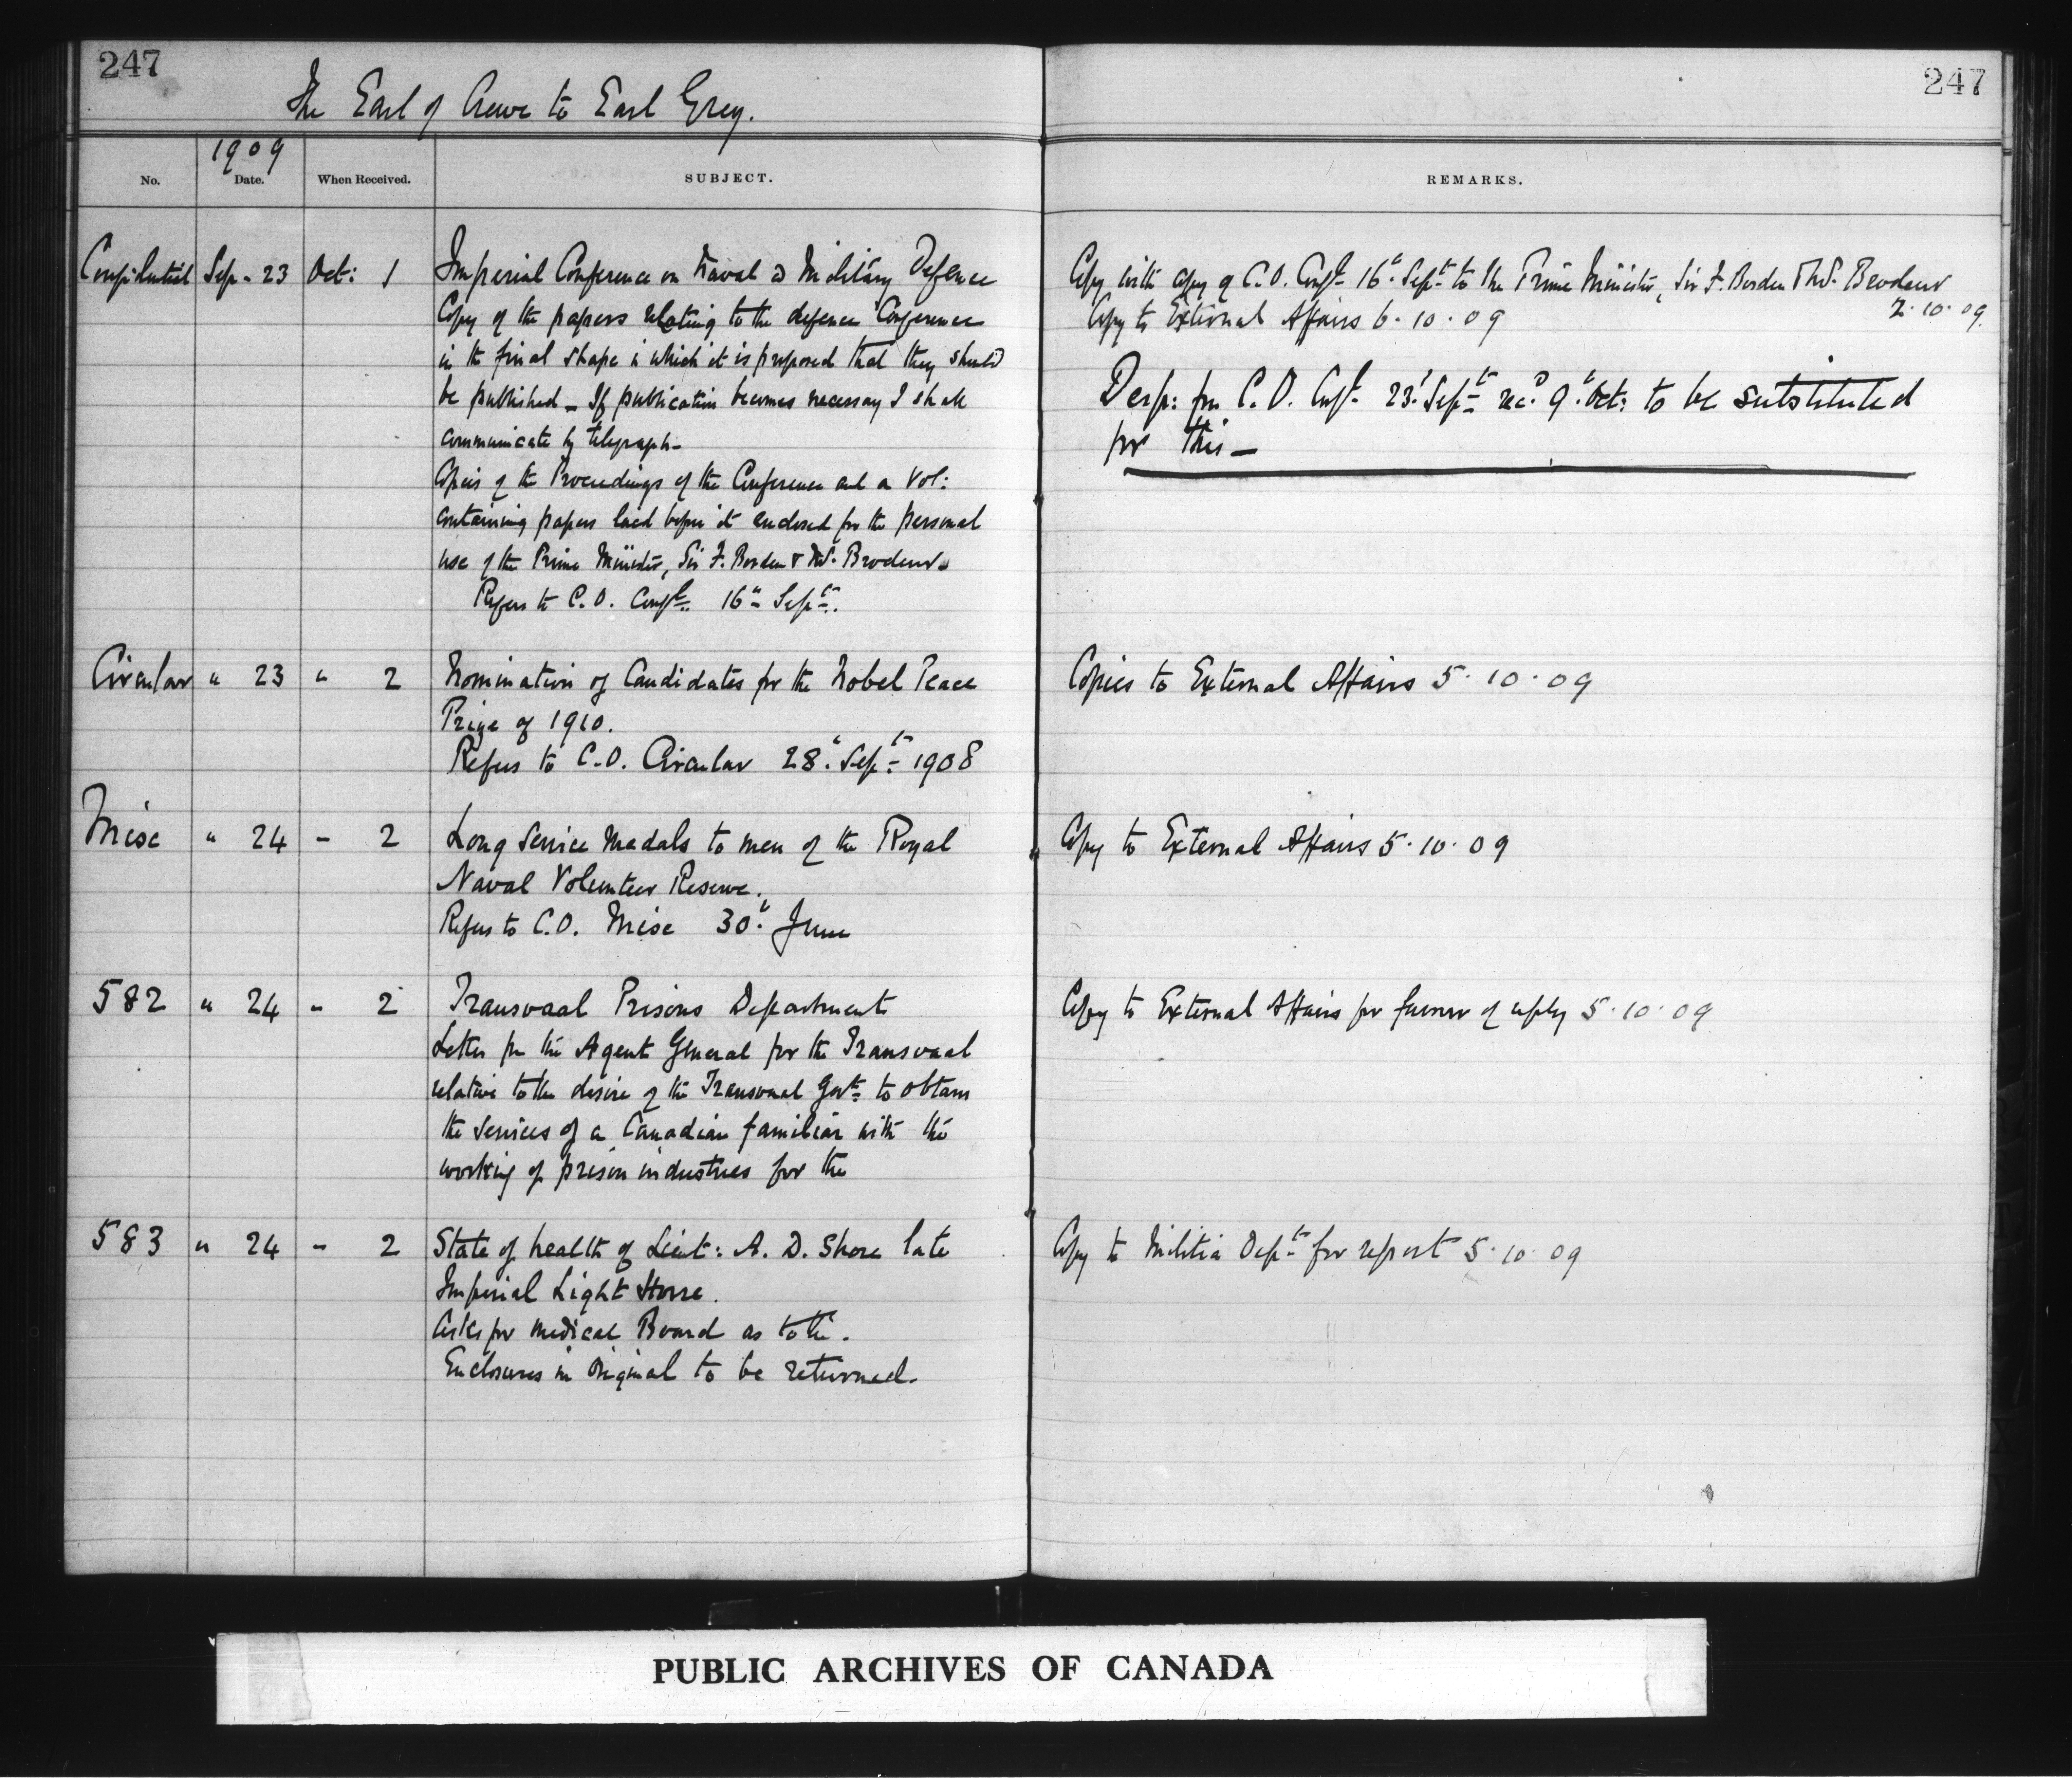 247
247
The Earl of Crewe to Earl Grey.
1909
No. Date. When Received. SUBJECT. REMARKS.
Confidential Sep. 23 Oct: 1 Imperial Conference on Naval & Military Defence
Copy of the papers relating to the defence Conference
in the final shape in which it is proposed that they should
be published _ If publication becomes necessary I shall
communicate by telegraph_
Copies of the Proceedings of the Conference and a Vol:
containing papers laid before it enclosed for the personal
use of the Prime Minister, Sir F. Borden & Mr. Brodeur
Refers to C.O. Confl. 16th Sept.
Copy with copy of C.O. Confl 16th Sept to the Prime Minister, Sir F. Borden & Mr. Brodeur
2.10.09.
Copy to External Affairs 6.10.09
Desp: fm C.O. Confl 23rd Sept recd 9th Oct: to be substituted
for this_
Circular " 23 " 2 Nomination of Candidates for the Nobel Peace
Prize of 1910.
Refers to C.O. Circular 28th Sept 1908
Copies to External Affairs 5.10.09
Misc " 24 - 2 Long Service medals to men of the Royal
Naval Volunteer Reserve.
Refers to C.O. Misc 30th June
Copy to External Affairs 5.10.09
582 " 24 - 2 Transvaal Prisons Department
Letter fm the Agent General for the Transvaal
relative to the desire of the Transvaal Govt to obtain
the services of a Canadian familiar with the
working of prison industries for the
Copy to External Affairs for favour of reply 5.10.09
583 " 24 - 2 State of health of Lieut: A. D. Shore late
Imperial Light Horse.
Asks for medical Board as to the.
Enclosures in original to be returned.
Copy to Militia Dept for report 5.10.09
PUBLIC ARCHIVES OF CANADA